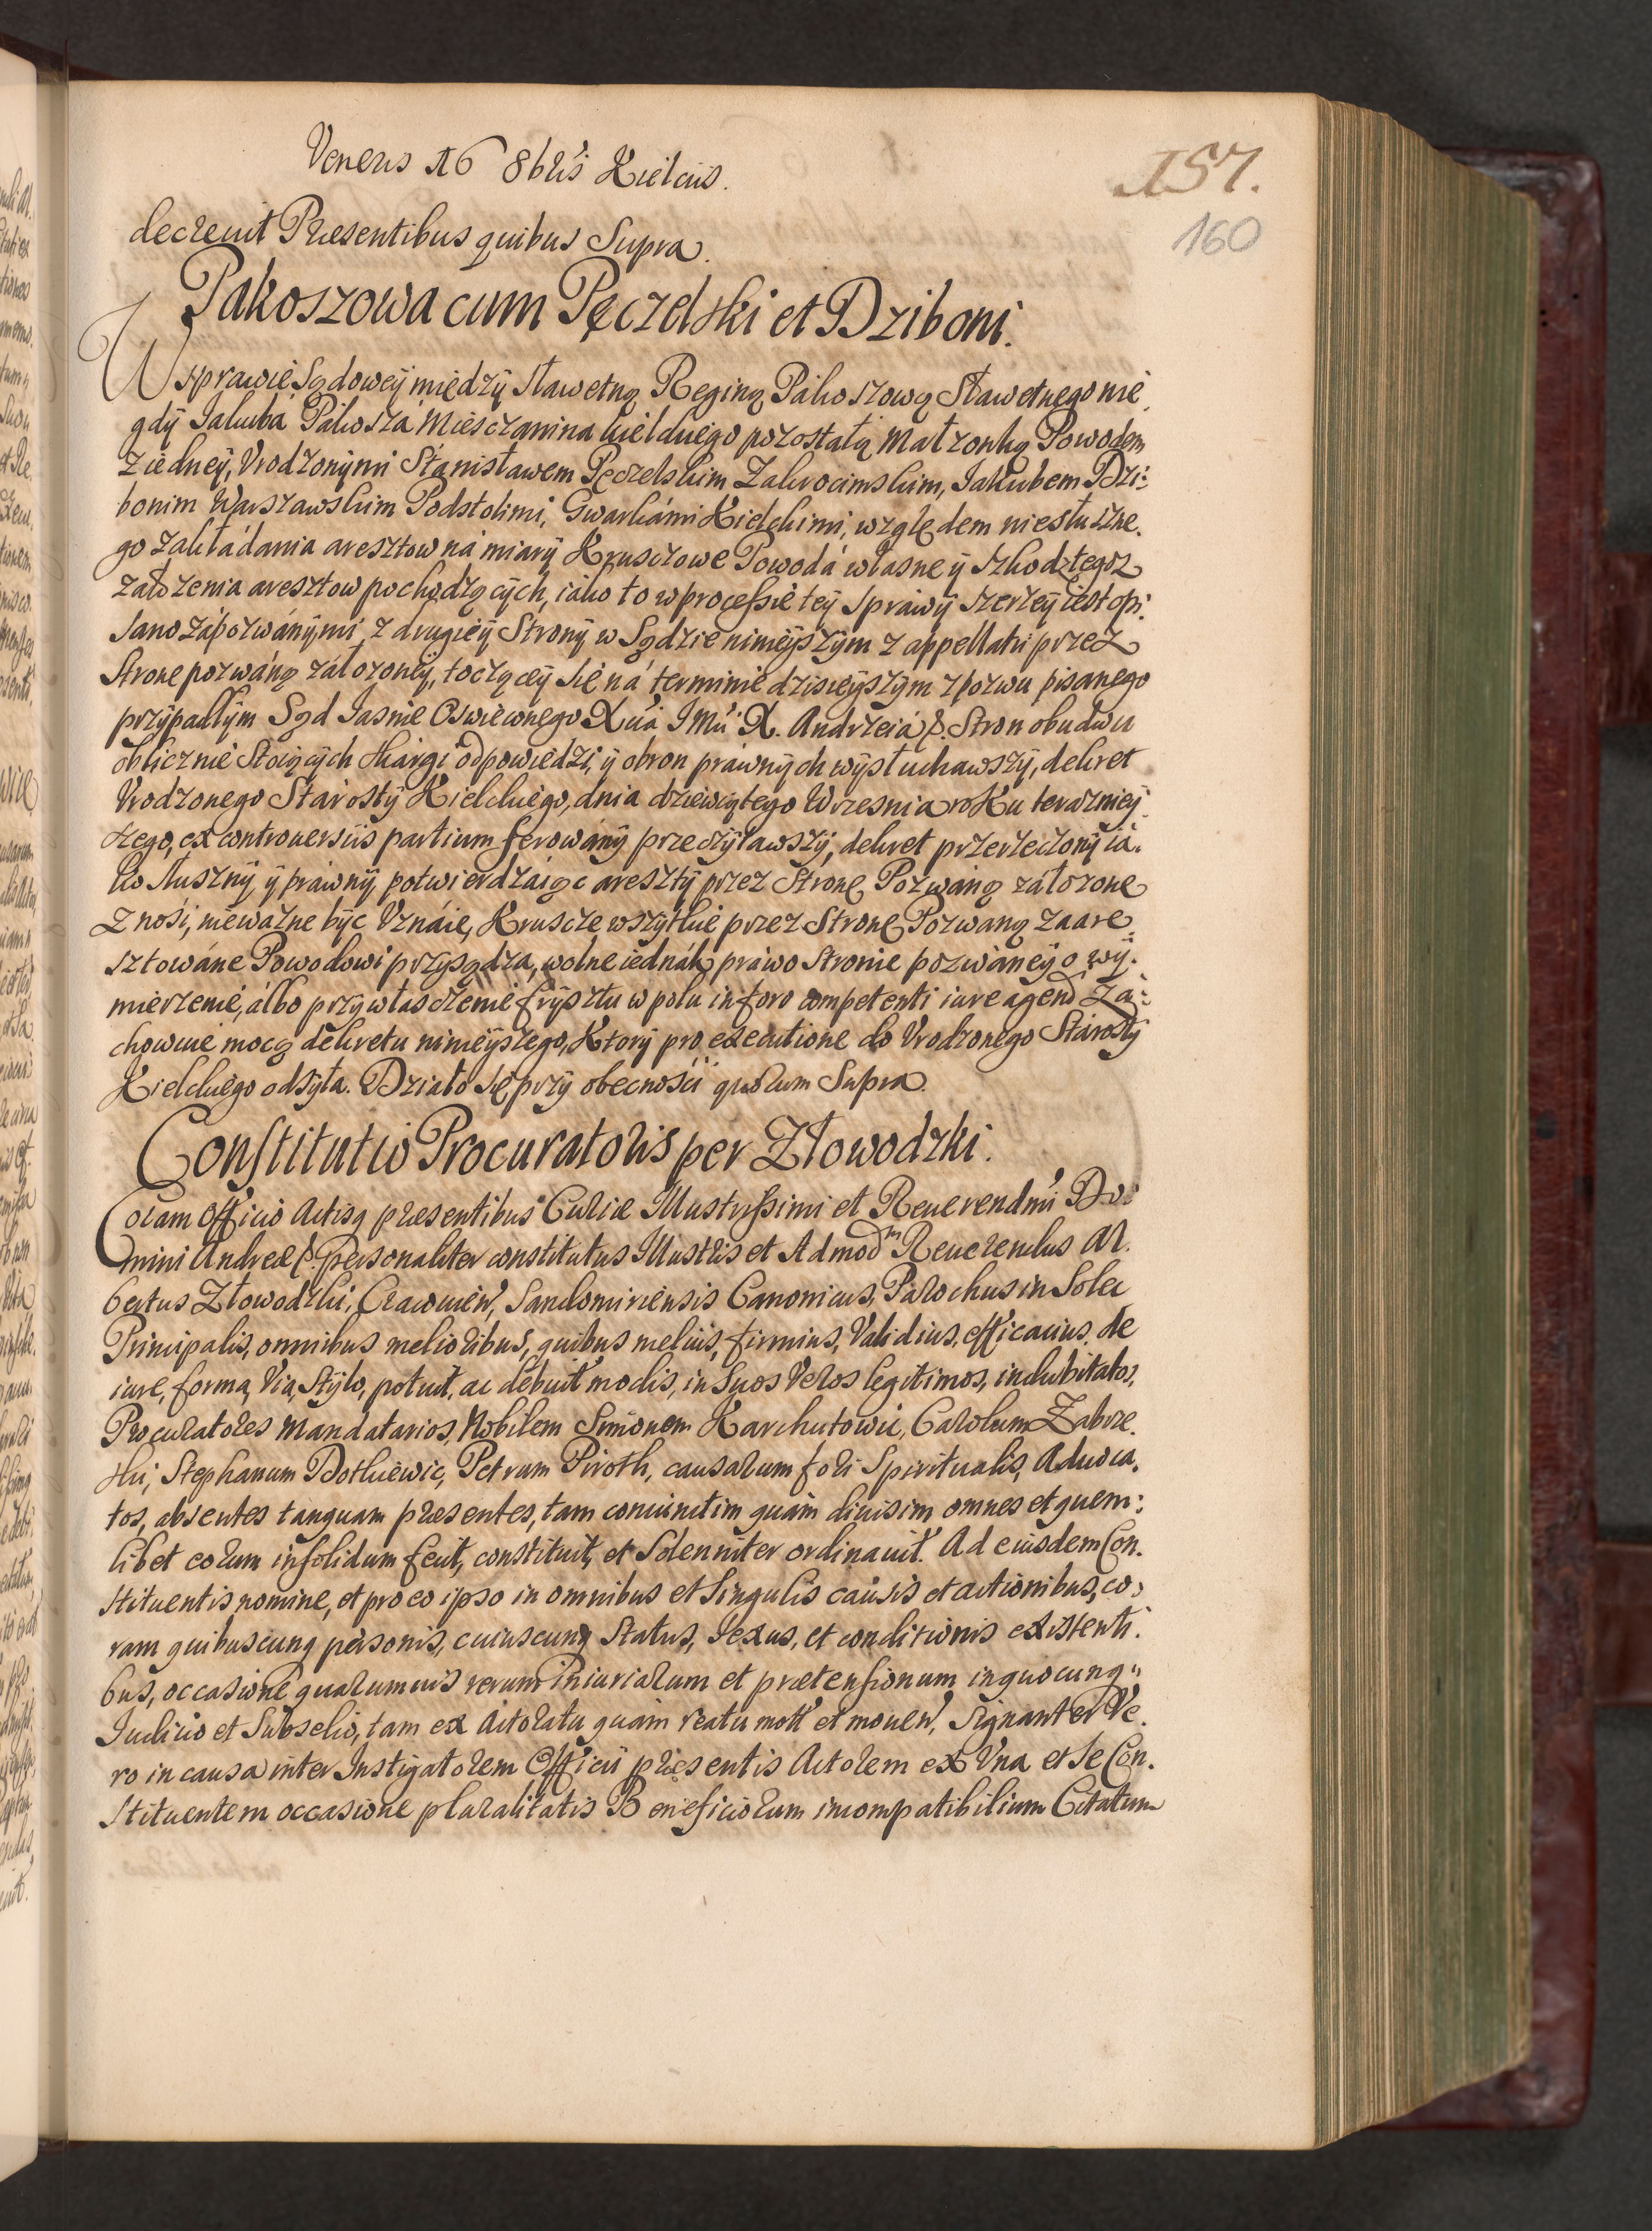 Veneris 16 8bris Kielciis.
157.
160
decreuit Præsentibus quibus Supra.
Pakoszowa cum Pęczelski et Dziboni.
W sprawie Sądoweÿ międzÿ Sławetną Reginą Pákoszową Sławetnego nie
gdÿ Iakuba Pákosza Miesczanina kielckiego pozostałą Małzonką Powodem
z iedneÿ, Vrodzonÿmi Stanisławem Pęczelskim Zakrocimskim, Iakubem Dzi:
bonim Warszawskim Podstolimi, Gwarkámi Kielckimi, względem niesłuszne.
go zakłádania aresztow ná miarÿ Kruszcowe Powodá własne ÿ szkod z tegoz
załozenia aresztow pochodzącÿch, iáko to w processie teÿ Sprawÿ szerzeÿ iest opi:
sano zápozwánÿmi, z drugieÿ Stronÿ w Sądzie ninieÿszÿm z appellatii przez
Strone pozwáną záłozoneÿ, toczącеÿ się ná terminie dzisieÿszÿm z pozwu pisanego
przÿpadłÿm Sąd Iasnie Oswieconego Xcia IMci X. Andrzeiá &. Stron obudwu
oblicznie Stoiącÿch skargi odpowiedzi, ÿ obron práwnÿch wÿsłuchawszÿ, dekret
Vrodzonego Starostÿ Kielckiego, dnia dziewiątego Wrzesnia roku terazniey.
szego, ex controuersiis partium ferowánÿ przeczÿtawszÿ, dekret przerzeczonÿ iá.
ko słusznÿ, ÿ práwnÿ, potwierdzáiąc aresztÿ przez Stronę Pozwáną záłozone
Znosi, niewazne bÿc Vznáie, Kruszcze wszÿtkie przez Stronę Pozwaną zaare.
sztowáne Powodowi przysądza, wolne iednák práwo Stronie pozwáneÿ o wÿ.
mierzenie, álbo przywłasczenie frÿsztu w polu in foro competenti iure agend Za:
chowuie mocą dekretu ninieÿszego, Ktorÿ pro executione do Vrodzonego Stárostÿ
Kielckiego odsÿła. Działo się przÿ obecności quorum Supra.
Constitutio Procuratoris per Złowodzki.
Coram Officio Actisq præsentibus Curiæ Illustrissimi et Reuerendmi Do:
mini Andreæ &. personaliter constitutus Illustris et Admodm Reuerendus Al.
bertus Złowodzki, Cracouien, Sandomiriensis Canonicus, Parochus in Solec
Principalis, omnibus melioribus, quibus melius, firmius, Validius, efficacius, de
iure, forma, Via, Stÿlo, potuit, ac debuit modis, in Suos Veros legitimos, indubitatos,
Procuratores Mandatarios, Nobilem Simonem Karchutowic, Carolum Zabrze.
ski, Stephanum Bothiewic, Petrum Piroth, causarum fori Spiritualis, Aduoca.
tos, absentes tanquam præsentes, tam coniunctim quám diuisim omnes et quem:
libet eorum insolidum fecit, constituit, et Solenniter ordinauit. Ad eiusdem Con.
stituentis nomine, et pro eo ipso in omnibus et Singulis causis et actionibus, co:
ram quibuscunq personis, cuiuscunq Status, Sexus, et conditionis existenti.
bus, occasione quarumuis rerum iniuriarum et prætensionum in quocunq
Iudicio et Subselio, tam ex Actoratu quám reatu mott et mouen, Signanter Ve.
ro in causa inter Instigatorem Officii præsentis Actorem ex Vna et Se Con.
stituentem occasione pluralitatis Beneficiorum incompatibilium Citatum